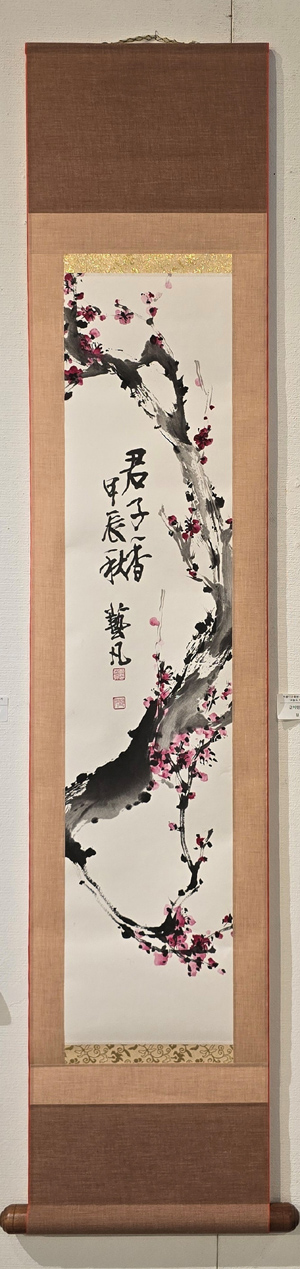 君子香
甲辰秋
藝凡